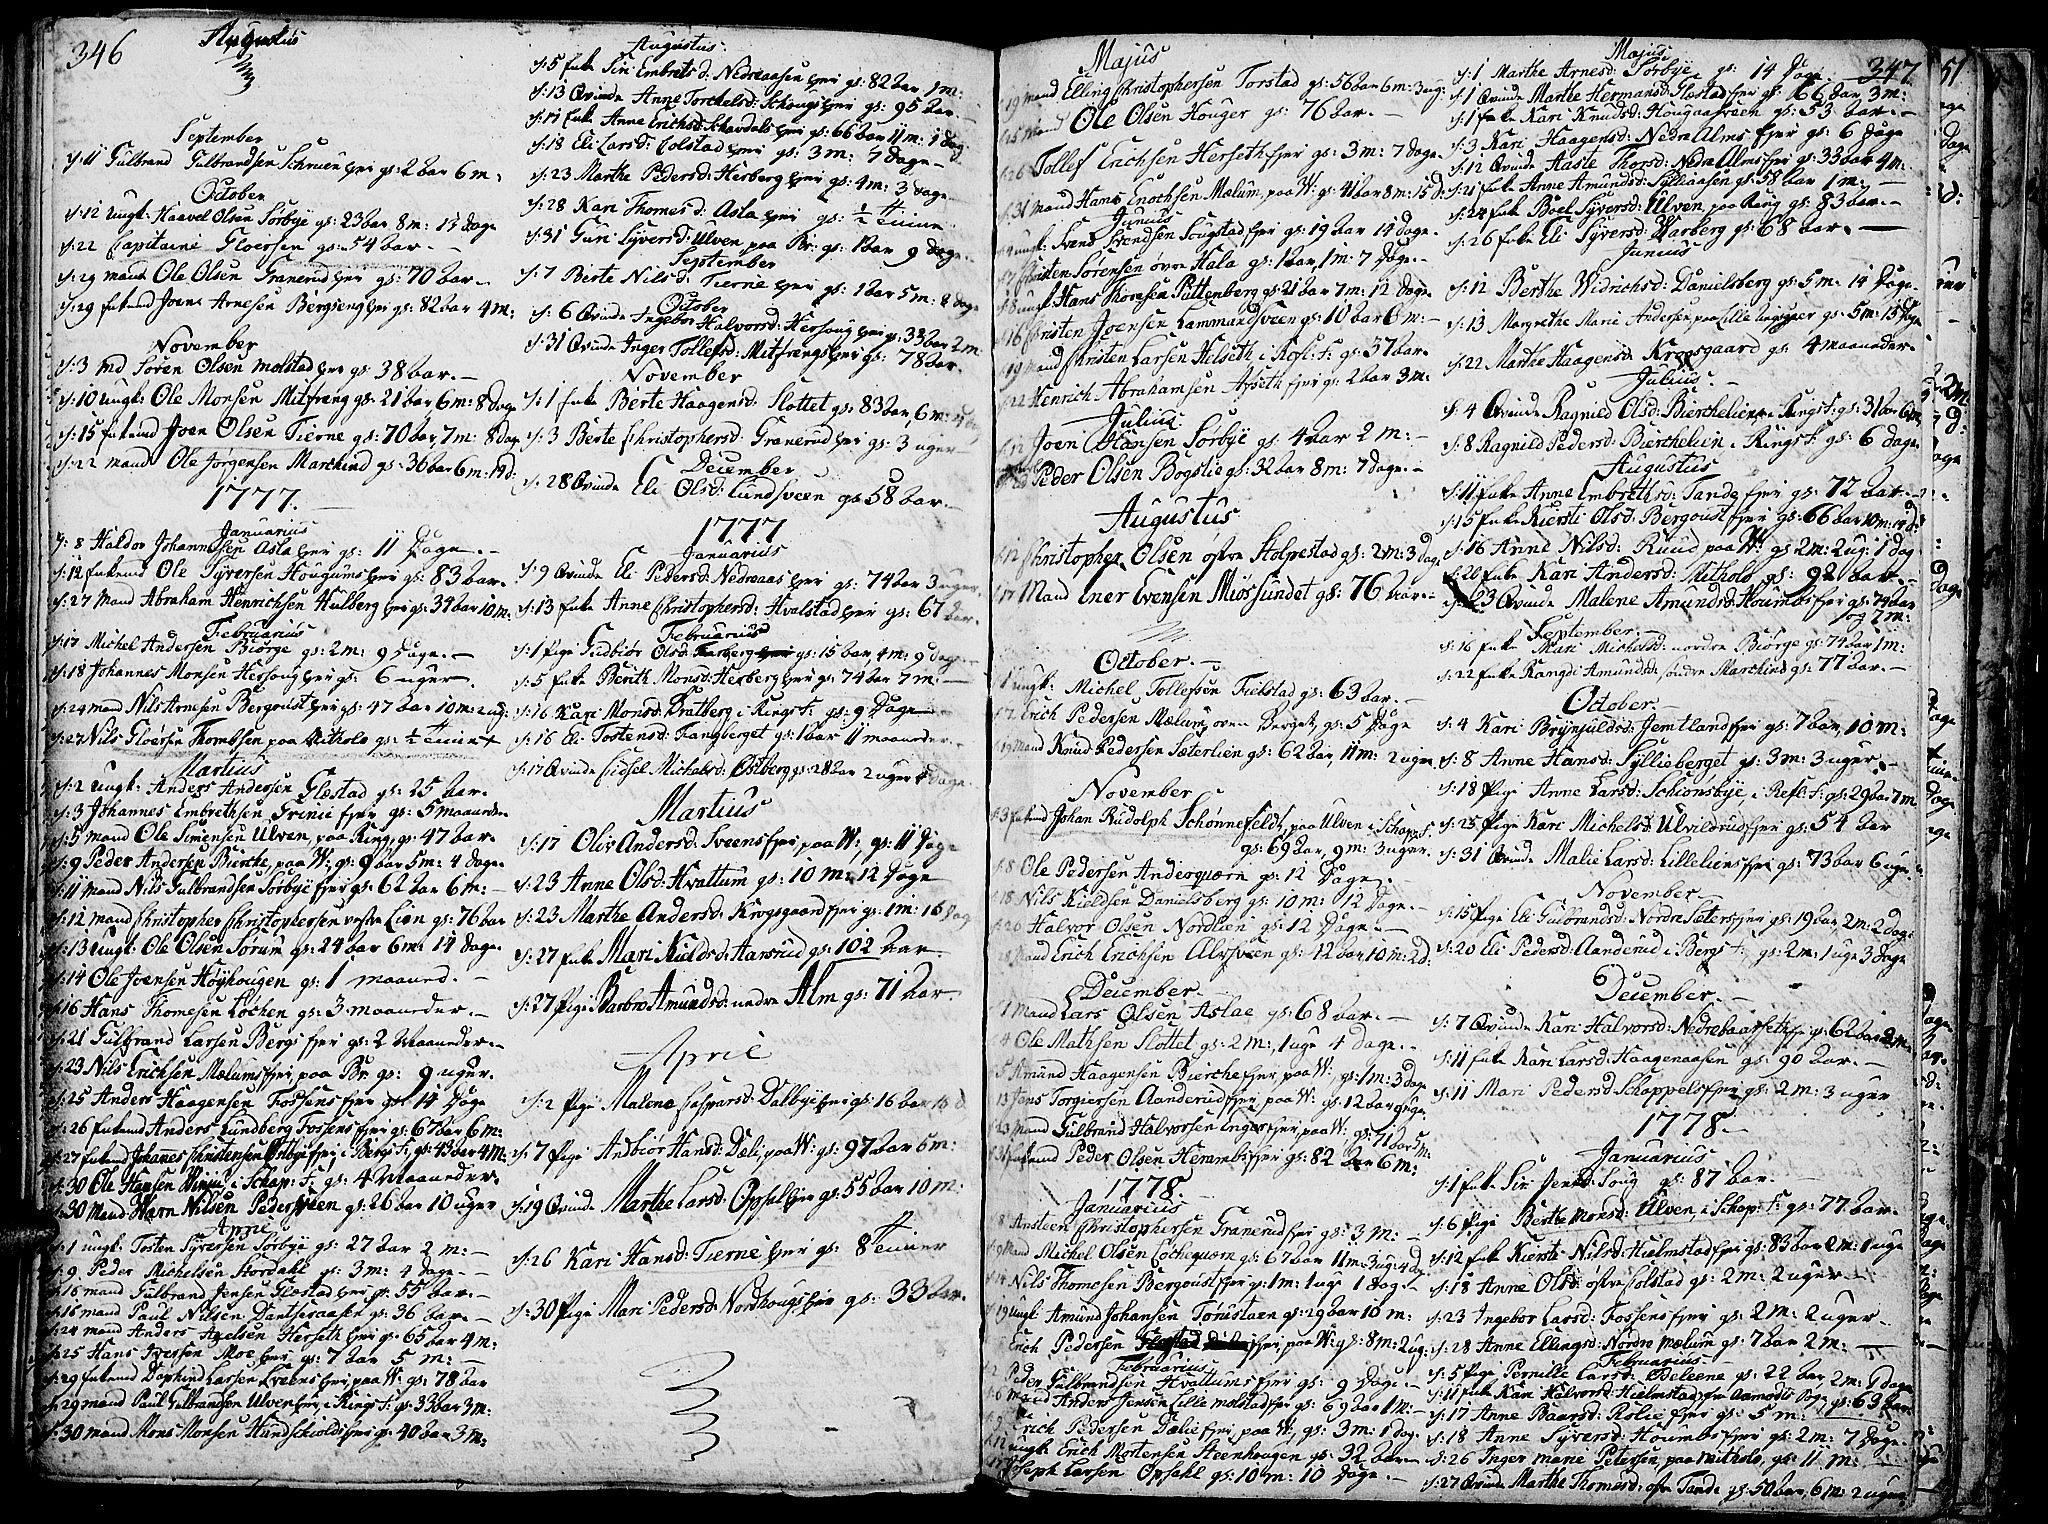 346
Augustus
September
d: 11 Gulbrand Gulbrandsen Schruen gs: 2 aar 6 m:
October
d: 12 ungk: Haavel Olsen Sørbye gs: 23 aar 8 m: 13 dage
d: 22 Capitaine Floersen gs: 54 aar.
d: 29 mand Ole Olsen Granerud gs: 70 aar.
d: 29 fatmd Joen Arnesen Bergseng gs: 82 aar 4 m:
November
d: 3 md Søren Olsen Molstad gs: 38 aar.
d: 10 ungk: Ole Monsen Mitfreng gs: 21 aar, 6 m: 8 dage
d: 15 Joen Olsen Tierne gs: 70 aar, 7 m: 8 dag
d: 22 mand Ole Jørgensen Marchind gs: 36 aar 6 m: 14 d:
1777.
Januarius
d: 8 Haldor Johannessen Asla gs: 11 Dage.
d: 12 Ole Syversen Hougums gs: 83 aar.
d: 27 mand Abraham Henrichsen Hulberg gs: 34 aar 10 m:
Februarius
d: 17 Michel Andersen Biørge gs: 2 m: 9 Dage.
d: 18 Johannes Monsen Hersoug gs: 6 uger.
d: 24 mand Nils Arnesen Bergoust gs: 47 aar 10 m: 2 ug:
d: 27 Nils Gloersen Thombsen paa Mitholo gs: ½ Time
Martius
d: 2 ungk: Anders Andersen Glæstad gs: 25 aar.
d: 3 Johannes Embrethsen Grinie fier gs: 5 maaneder
d: 5 mand Ole Simensen Ulven, paa Ring, gs: 47 aar.
d: 9 Peder Andersen Bierche, paa W: gs: 9 aar 5 m: 4 dage.
d: 11 mand Nils Gulbrandsen Sørbye fier gs: 62 aar 6 m:
d: 12 mand Christopher Christophersen vestre Lien gs: 76 aar
d: 13 ungk: Ole Olsen Sørum gs: 24 aar 6 m: 14 dage.
d: 14 Ole Joensen Høyhougen gs: 1 maaned.
d: 16 Hans Thomesen Løchen gs: 3 maaneder.
d: 21 Gulbrand Larsen Bergs fier gs: 2 Maaneder.
d: 23 Nils Erichsen Mælums fier paa Br: gs: 9 uger.
d: 25 Anders Haagensen Fossens fier gs: 14 Dage
d: 26 Anders Lundberg Fossens fier gs: 67 aar 6 m:
d: 27 Johanes Christensen i Bergs F: gs: 43 aar 4 m:
d: 30 Ole Hansen Winju i Schap: F: gs: 4 Maaneder.
d: 30 mand Nilsen Pedersveen gs: 26 aar 10 uger
April
d: 1 ungk: Tosten Syversen Sørbye gs: 27 aar 2 m:
d: 9 Peder Michelsen Hordahl gs: 3 m: 4 dage.
d: 16 mand Gulbrand Jensen Glestad fier gs: 55 aar.
d: 16 mand Paul Nilsen Dantseraasen gs: 36 aar.
d: 24 mand Anders Axelsen Herseth gs: 65 aar 4 m:
d: 25 Hans Iversen Moe gs: 7 aar 5 m:
d: 29 Daphind Larsen Sveens fier paa W: gs: 78 aar
d: 29 mand Paul Gulbrandsen Ulven, i Rings F: gs: 33 aar 3 m:
d: 30 mand Mons Monsen Hundschiold fier gs: 40 aar 3 m:
Augustus.
d: 5 Enke Siri Embretsd: Nedreaasen gs: 82 aar 1 m:
d: 13 Qvinde Anne Torchelsd: Schougs gs: 95 aar.
d: 17 Enke Anne Erichsd: Schavdals gs: 66 aar 11 m: 1 dag
d: 18 Eli Larsd: Colstad gs: 3 m: 7 Dage
d: 23 Marthe Pedersd: Herberg gs: 4 m: 3 dage
d: 28 Kari Thomesd: Asla gs: ½ Time
d: 31 Guri Syversd: Ulven, paa Br: gs: 1 aar 9 dage.
September
d: 7 Berte Nilsd: Tierne gs: 1 aar 5 m: 8 dage
October
d: 6 Qvinde Ingebor Halvorsd: Hersoug gs: 33 aar 2 m.
d: 31 Qvinde Inger Tollefsd: Mitfrengs gs: 78 aar.
November
d: 1 Enke Berte Haagensd: Slottet gs: 83 aar, 6 m: 4 dag
d: 3 Berte Christophersd: Granerud gs: 3 uger
December
d: 28 Qvinde Eli Olsd: Lundsveen gs: 58 aar.
1777
Januarius
d: 9 Qvinde Eli Pedersd: Nedreaas gs: 74 aar 3 uger.
d: 13 Enke Anne Christophersd: Hvalstad gs: 67 aar.
Februarius
d: 1 Pige Gudbiør Olsd: gs: 15 aar, 4 m: 9 dage
d: 5 Enke Berith Monsd: Herberg gs: 74 aar 7 m:
d: 16 Kari Monsd: Bratberg i Rings F: gs: 9 Dage
d: 16 Eli Tostensd: Rangberget gs: 1 aar 11 maaneder.
d: 17 Qvinde Sidsel Michelsd: Østberg gs: 28 aar 2 uger 4 dage.
Martius
d: 17 Oliv Andersd: Sveens fier, paa W: gs: 11 Dage
d: 23 Anne Olsd: Hvattum gs: 10 m: 12 Dage
d: 23 Marthe Andersd: Krogsgaard fier gs: 1 m: 16 dag
d: 27 Enke Mari Nieldsd: Hansrud gs: 102 aar
d: 27 Pige Barbro Amundsd: nedre Alm gs: 71 aar.
April
d: 2 Pige Malene Caspersd: Dalbye gs: 16 aar 13 d
d: 7 Pige Andbiør Hansd: Deli, paa W: gs: 97 aar 6 m:
d: 19 Qvinde Marthe Larsd: Opsal gs: 55 aar 10 m:
d: 26 Kari Hansd: Tierne gs: 8 Timer
d: 30 Pige Mari Pedersd: Nordhougs gs: 33 aar.
Majus
19 mand Elling Christophersen Torstad gs: 56 aar 6 m: 3 ug:
25 mand Ole Olsen Houger gs: 76 aar.
d: 26 Tollef Erichsen Herseth fier gs: 3 m: 7 dage.
d: 31 mand Hans Enochsen Mælum, paa W: gs: 41 aar 8 m: 15 d:
Junius
d: 4 ungk: Svend Svendsen Sougstad fier gs: 19 aar 14 dage.
d: 7 Christen Sørensen øvre Hala gs: 1 aar, 1 m: 7 Dage.
d: 8 ungk Hans Thomsen Puttenberg gs: 21 aar 7 m: 12 dage
d: 16 Christen Joensen Lammandsveen gs: 10 aar 6 m:
d: 19 mand Christen Larsen Helseth i Refl: F: gs: 37 aar.
d: 22 Henrich Abrahamsen Arseth fier gs: 2 aar 3 m:
Julius
d: 12 Joen Hansen Sørbye gs: 4 aar 2 m:
Peder Olsen Bogstie gs: 32 aar 8 m: 7 dage.
Augustus
d: 12 Christopher Olsen østre Stolpestad gs: 2 m: 3 dag
d: 17 Mand Ener Evensen Miøssundet gs: 76 aar.
October
d: 1 ungk: Michel Tollefsen Fielstad gs: 63 aar.
d: 7 Erich Pedersen Mælum, oven Berget, gs: 5 Dage
d: 19 mand Knud Pedersen Sæterlien gs: 62 aar, 11 m: 2 uger
November
d: 3 Johan Rudolph Schønnefeldt, paa Ulven i Schap: F.
gs: 69 aar, 9 m: 3 uger.
d: 8 Ole Pedersen Anderqværn gs: 12 Dage.
d: 18 Nils Kieldsen Danielsberg gs: 10 m: 12 Dage.
d: 20 Halvor Olsen Nordlien gs: 12 Dage.
mand Erich Erichsen Allysveen gs: 42 aar 10 m: 2 d.
December
1 mand Lars Olsen Aslae gs: 68 aar.
4 Ole Mathsen Slottet gs: 2 m:, 1 uge 4 dage.
5 Amund Haagensen Bierche fier, paa W:, gs: 1 m: 3 Dage
13 Jens Torgiersen Aanderud fier, paa W: gs: 12 aar 9 uger.
23 mand Gulbrand Halvorsen Enger fier, paa W: gs: 71 aar 5 m:
Peder Olsen Hemmb fier gs: 82 aar 6 m:
1778.
Januarius
8 Ansteen Christophersen Granerud fier gs: 3 m:
9 mand Michel Olsen Løcheqværn gs: 67 aar 11 m: 3 ug: 4 dag
14 Nils Thomesen Bergoust fier gs: 1 m: 1 uge 1 dag
19 ungk Amund Johansen Tomstaen gs: 29 aar 10 m:
Erich Pedersen fier, paa W: gs: 8 m: 2 ug:
Februarius
2 Peder Gulbrandsen Hvattums fier gs: 9 Dage.
6 mand Anders Jensen Lille Molstad fier gs: 69 aar 1 m:
Erich Pedersen Dælie fier, paa W:, gs: 3 m: 1 dag.
12 ungk Erich Mortensen Steenhougen gs: 32 aar.
17 Joseph Larsen Opsahl gs: 10 m: 10 Dage.
Majus
347
d: 1 Marthe Arnesd: Sørbye gs: 14 Dage.
d: 1 Qvinde Marthe Hermansd: Glestad fier gs: 66 aar 3 m:
d: 1 Enke Kari Knudsd: Hougaasveen gs: 53 aar.
d: 3 Kari Haagensd: Nedre Alms fier gs: 6 Dage
d: 12 Qvinde Aaste Thorsd: Nedre Alms fier gs: 33 aar 4 m.
d: 21 Enke Anne Amundsd: Sylliaasen gs: 58 aar 1 m:
d: 24 Enke Boel Syversd: Ulven, paa Ring gs: 83 aar.
d: 26 Enke Eli Syversd: Warberg gs: 68 aar.
Junius
d: 12 Berthe Widrichsd: Danielsberg gs: 5 m: 14 Dage.
d: 13 Margrethe Marie Andersen, paa Lille gs: 5 m: 15 Dge
d: 22 Marthe Haagensd: Krogsgaard gs: 4 maaneder.
Julius.
d: 4 Qvinde Ragnild Olsd: Bierchelien, i Rings F: gs: 31 aar 6 m:
d: 8 Ragnild Pedersd: Bierchelien i Rings F: gs: 6 dage
Augustus
d: 11 Enke Anne Embrethsd: Tande fier gs: 72 aar.
d: 15 Enke Kiersti Olsd: Bergoust fier gs: 66 aar 10 m: 14 d:
d: 16 Anne Nilsd: Ruud paa W: gs 2 m: 2 ug: 1 dag
d: 20 Enke Kari Andersd: Mitholo, gs: 92 aar.
d: 23 Qvinde Malene Amundsd: Houmbs fier gs: 74 aar
og 7 m:
September.
d: 16 Enke Mari Michelsd: nordre Biørge gs: 74 aar 1 m:
d: 22 Enke Rangdi Amundsd: søndre Marchind gs: 77 aar.
October.
d: 4 Kari Brynjuldsd: Jemtland fier gs: 7 aar, 10 m:
d: 8 Anne Hansd: Syllieberget gs: 3 m: 3 uger.
d: 18 Pige Anne Larsd: Schiønsbye, i Refl: F: gs: 29 aar 7 m
d: 25 Pige Kari Michelsd: Ulvildrud fier gs: 54 aar
d: 31 Qvinde Malie Larsd: Lilleliens fier gs: 73 aar 6 uge
November
d: 15 Pige Eli Gulbrandsd: Nordre Sæters fier gs: 19 aar 2 m: 2 dage
d: 20 Eli Pedersd: Aanderud i Bergs F: gs: 2 m: 1 uge 3 Dage
December.
d: 7 Qvinde Kari Halvorsd: Nedrebaarseth fier gs: 62 aar 2 m:
d: 11 Enke Kari Larsd: Haagenaasen gs: 90 aar.
d: 11 Mari Pedersd: Schappels fier gs: 2 m: 3 uger
1778.
Januarius
d: 1 Enke Siri Jensd: Soug gs: 87 aar.
d: 6 Pige Berthe Monsd: Ulven, i Schap: F: gs: 77 aar.
d: 12 Enke Kiersti Nilsd: Hielmstad fier gs: 83 aar 2 m: 1 uge
d: 18 Anne Olsd: østre Colstad gs: 2 m: 2 uger.
d: 23 Ingebor Larsd: Fossens fier gs: 2 m: 2 uger.
d: 28 Anne Ellingsd: Nordre Mælum gs: 7 aar 2 m:
Februarius
d: 5 Pige Pernille Larsd: Beleene gs: 22 aar 2 m: 9 dage
d: 11 Enke Kari Halvorsd: Hielmstad fier gs: 63 aar.
d: 17 Anne Baarsd: Rolie fier gs: 5 m:
d: 18 Anne Syversd: Houmbs fier gs: 2 m: 7 Dage.
d: 26 Inger Marie Petersen, paa Mitholo, gs: 11 m:
d: 27 Qvinde Marthe Thomesd: øfre Tande gs: 50 aar, 6 m: 2 uger
51